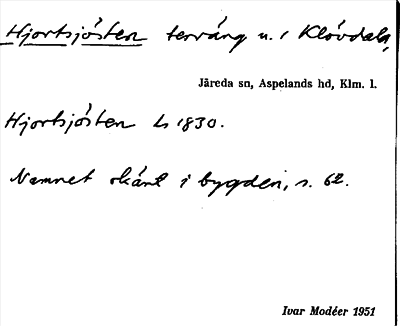 Hjortsjösten terräng n. i Klövdala,
Järeda sn, Aspelands hd, Klm. l.
Hjortsjösten Ls 1830.
Namnet okänt i bygden, s. 62.
Ivar Modéer 1951